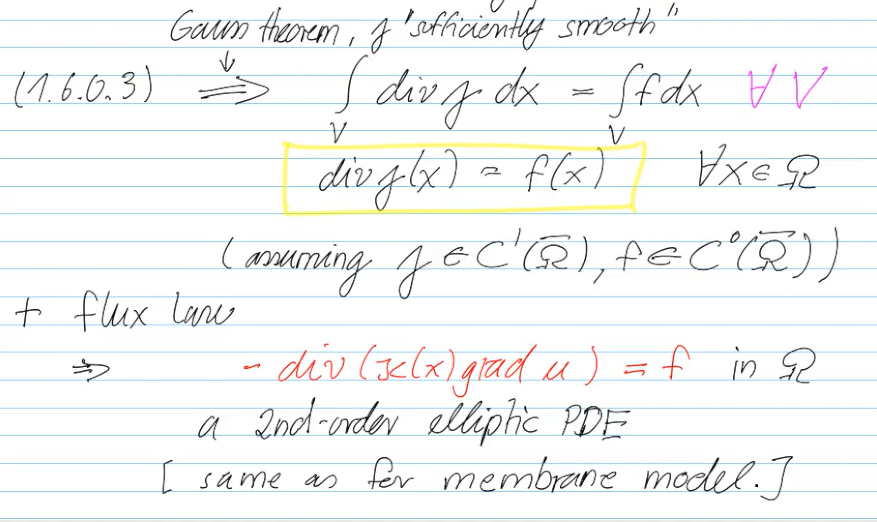 Gauss theorem, j "sufficiently smooth"
(1.6.0.3) ⇓ ⟹ ∫_V div j dx = ∫_V f dx ∀ V
div j(x) = f(x) ∀x ∈ Ω
(assuming j ∈ C¹(Ω̅), f ∈ C⁰(Ω̅))
+ flux law
⇒ - div (κ(x) grad u) = f in Ω
a 2nd-order elliptic PDE
[ same as for membrane model. ]